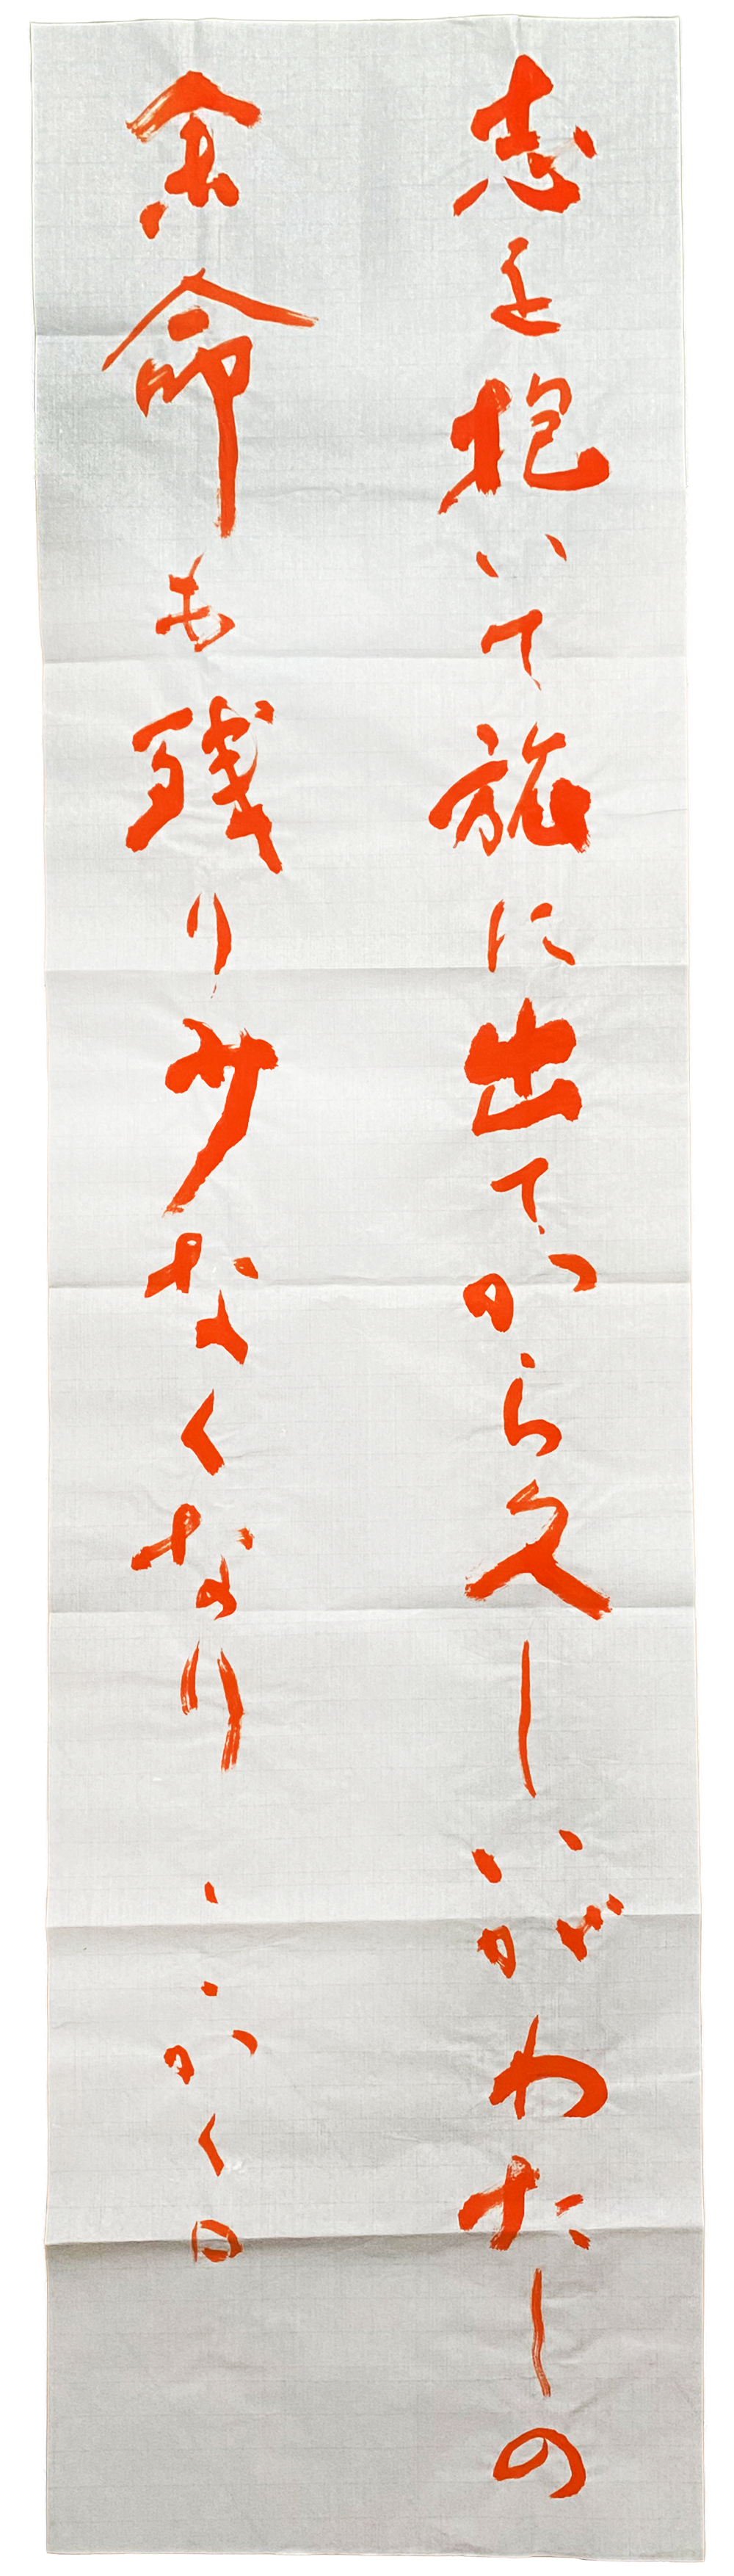 志を抱いて旅に出てから久しいがわたしの
余命も残り少なくなり